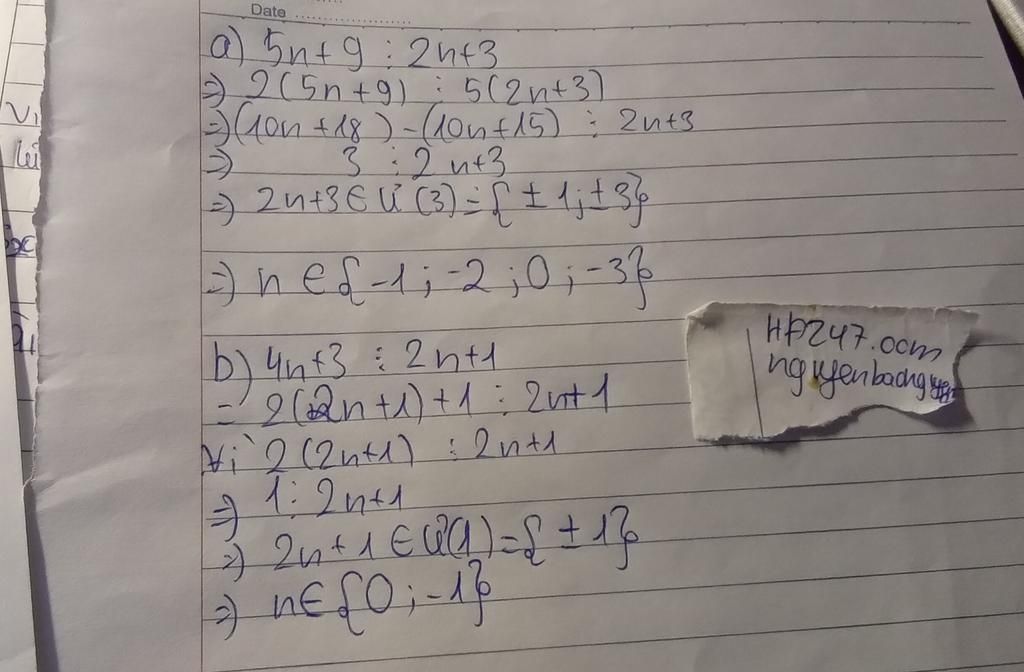 Date
a) 5n+9 ⋮ 2n+3
⇒ 2(5n+9) ⋮ 5(2n+3)
⇒ (10n+18) - (10n+15) ⋮ 2n+3
⇒ 3 ⋮ 2n+3
⇒ 2n+3 ∈ Ư(3) = { ±1; ±3}
⇒ n ∈ { -1 ; -2 ; 0 ; -3}
b) 4n+3 ⋮ 2n+1
= 2(2n+1) +1 ⋮ 2n+1
Vì 2(2n+1) ⋮ 2n+1
⇒ 1 ⋮ 2n+1
⇒ 2n+1 ∈ Ư(1) = { ±1}
⇒ n ∈ {0 ; -1}